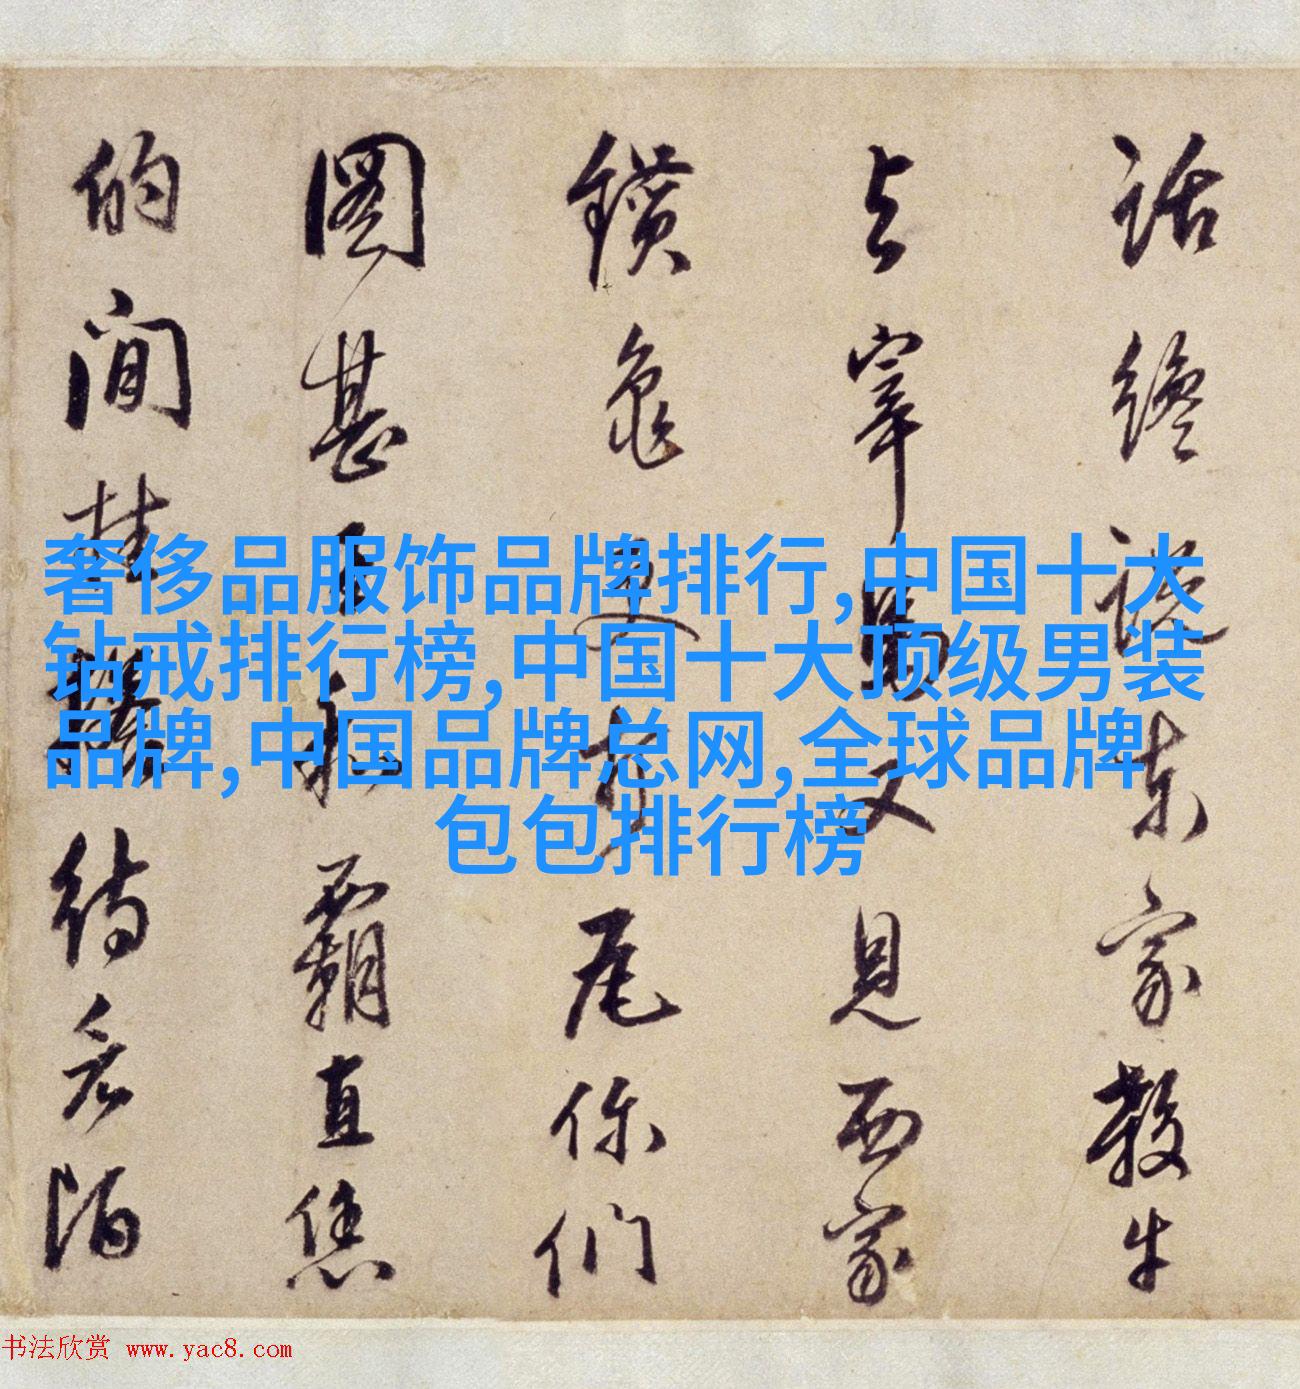 奢侈品服饰品牌排行,中国十大
钻戒排行榜,中国十大顶级男装
品牌,中国品牌总网,全球品牌
包包排行榜
話說東家教牛
与宰馬又見西家
龜尾你们
圖甚王和霸直恁
的間待
书法欣赏 www.yac8.com